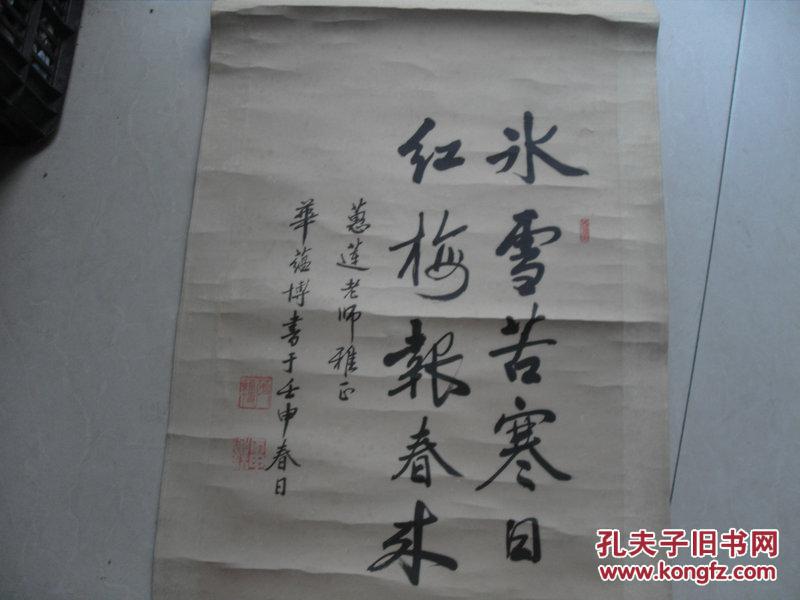 冰雪苦寒日
红梅報春来
蕙莲老师雅正
華蕴博書于壬申春日
孔夫子旧书网
www.kongfz.com